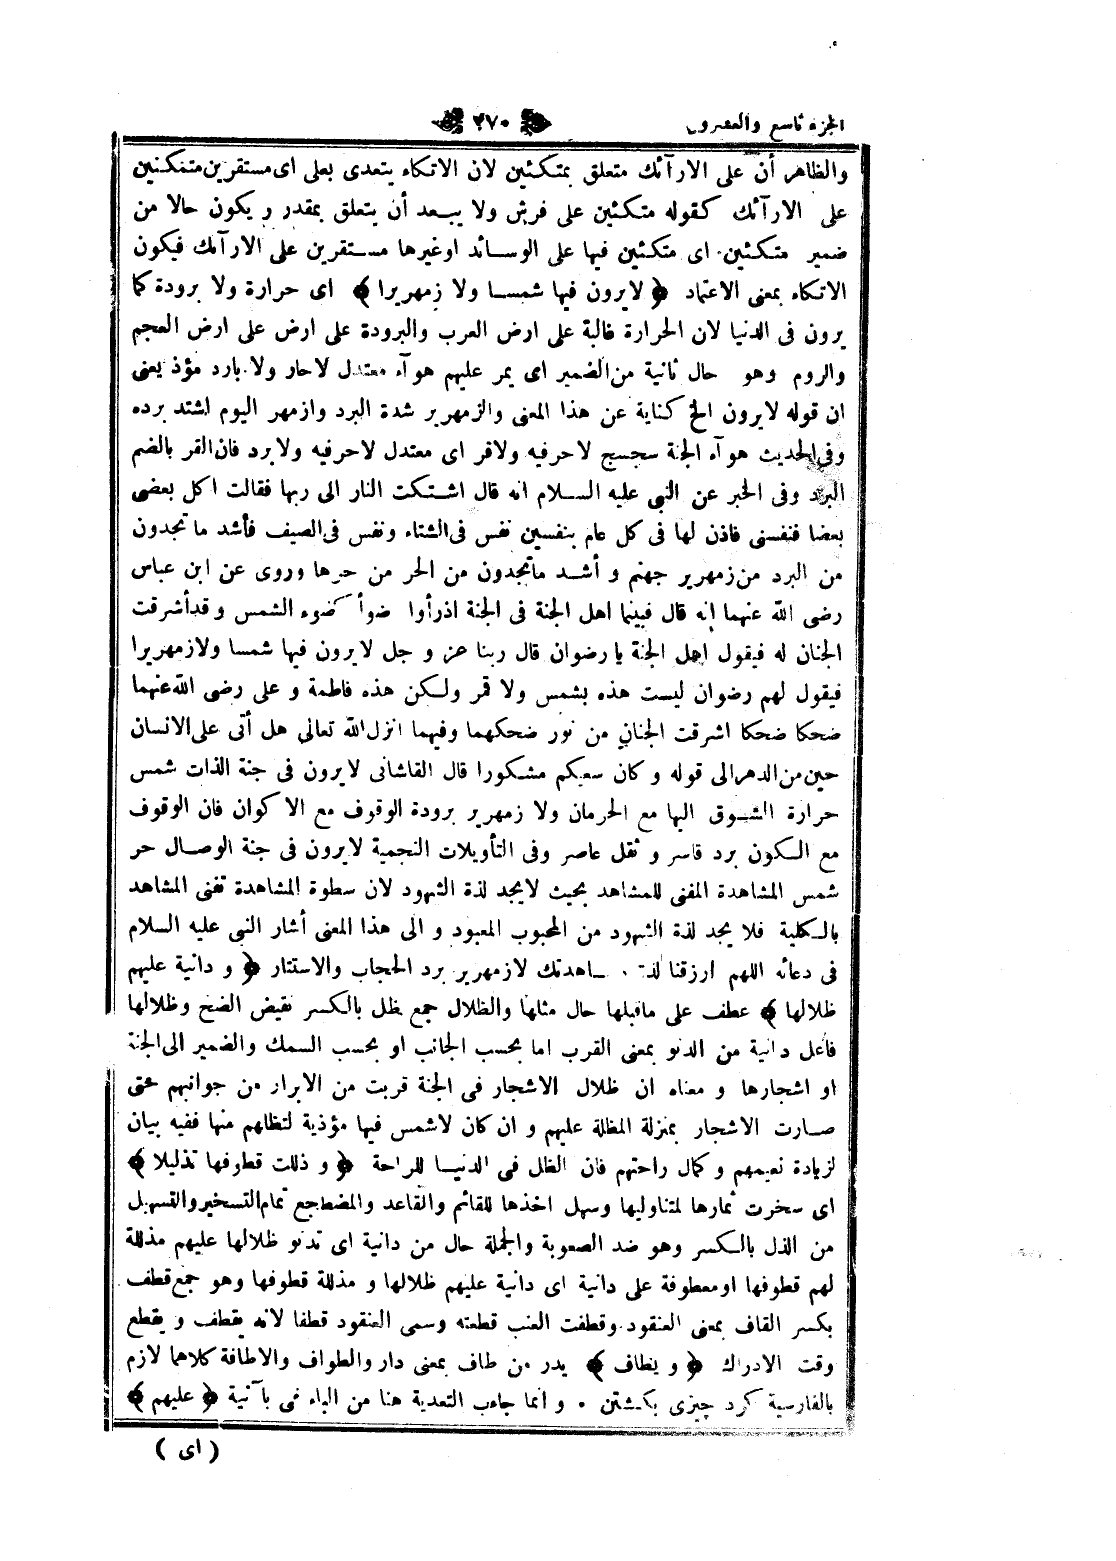 الجزء تاسع والعشرون ٢٧٠
والظاهر أن على الارآئك متعلق بمتكئين لان الاتكاء يتعدى بعلى اى مستقرين متمكنين
على الارآئك كقوله متكئين على فرش ولا يبعد أن يتعلق بمقدر ويكون حالا من
ضمير متكئين اى متكئين فيها على الوسائد اوغيرها مستقرين على الارآئك فيكون
الاتكاء بمعنى الاعتماد ﴿ لايرون فيها شمسا ولا زمهريرا ﴾ اى حرارة ولا برودة كما
يرون فى الدنيا لان الحرارة غالبة على ارض العرب والبرودة على ارض على ارض العجم
والروم وهو حال ثانية من الضمير اى يمر عليهم هوآء معتدل لاحار ولا بارد مؤذ يعنى
ان قوله لايرون الخ كناية عن هذا المعنى والزمهرير شدة البرد وازمهر اليوم اشتد برده
وفى الحديث هوآء الجنة سجسج لاحرفيه ولاقر اى معتدل لاحرفيه ولابرد فان القر بالضم
البرد وفى الخبر عن النبى عليه السلام انه قال اشتكت النار الى ربها فقالت اكل بعضى
بعضا فنفسنى فاذن لها فى كل عام بنفسين نفس فى الشتاء ونفس فى الصيف فأشد ماتجدون
من البرد من زمهرير جهنم و أشد ماتجدون من الحر من حرها وروى عن ابن عباس
رضى الله عنهما إنه قال فبينما اهل الجنة فى الجنة اذرأوا ضوأ كضوء الشمس وقدأشرقت
الجنان له فيقول اهل الجنة يارضوان قال ربنا عز و جل لايرون فيها شمسا ولازمهريرا
فيقول لهم رضوان ليست هذه بشمس ولا قمر ولكن هذه فاطمة و على رضى الله عنهما
ضحكا ضحكا اشرقت الجنان من نور ضحكهما وفيهما انزل الله تعالى هل أتى على الانسان
حين من الدهر الى قوله و كان سعيكم مشكورا قال القاشانى لايرون فى جنة الذات شمس
حرارة الشوق اليها مع الحرمان ولا زمهرير برودة الوقوف مع الاكوان فان الوقوف
مع الكون برد قاسر و ثقل عاصر وفى التأويلات النجمية لايرون فى جنة الوصال حر
شمس المشاهدة المفنى للمشاهد بحيث لايجد لذة الشهود لان سطوة المشاهدة تفنى المشاهد
بالكلية فلا يجد لذة الشهود من المحبوب المعبود و الى هذا المعنى أشار النبى عليه السلام
فى دعائه اللهم ارزقنا لذة ـاهدتك لازمهرير برد الحجاب والاستتار ﴿ و دانية عليهم
ظلالها ﴾ عطف على ماقبلها حال مثلها والظلال جمع ظل بالكسر نقيض الضح وظلالها
فاعل دانية من الدنو بمعنى القرب اما بحسب الجانب او بحسب السمك والضمير الى الجنة
او اشجارها و معناه ان ظلال الاشجار فى الجنة قربت من الابرار من جوانبهم حتى
صارت الاشجار بمنزلة المظلة عليهم و ان كان لاشمس فيها مؤذية لتظلهم منها ففيه بيان
لزيادة نعيمهم و كمال راحتهم فان الظل فى الدنيا للراحة ﴿ و ذللت قطوفها تذليلا ﴾
اى سخرت ثمارها لمتناوليها وسهل اخذها للقائم والقاعد والمضطجع تمام التسخير والتسهيل
من الذل بالكسر وهو ضد الصعوبة والجملة حال من دانية اى تدنو ظلالها عليهم مذللة
لهم قطوفها اومعطوفة على دانية اى دانية عليهم ظلالها و مذللة قطوفها وهو جمع قطف
بكسر القاف بمعنى العنقود وقطفت العنب قطعته وسمى العنقود قطفا لانه يقطف و يقطع
وقت الادراك ﴿ و يطاف ﴾ يدر من طاف بمعنى دار والطواف والاطافة كلاهما لازم
بالفارسية كرد چيزى بكشتن . و انما جاءت التعدية هنا من الباء فى بآنية ﴿ عليهم ﴾
( اى )